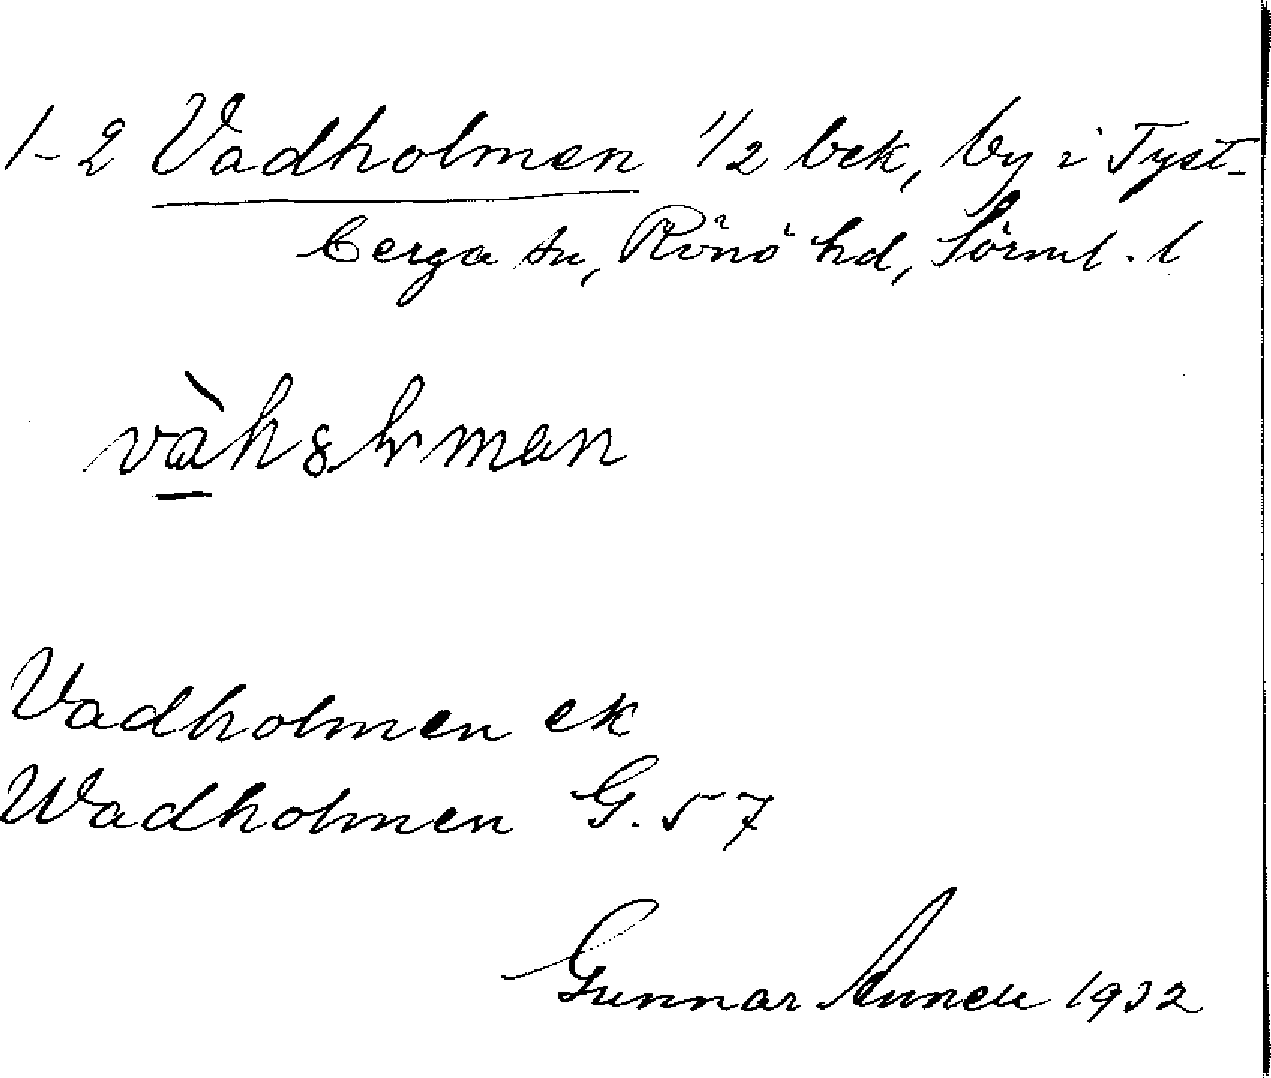 1-2 Vadholmen 1/2 bek, by i Tyst-
berga sn, Rönö hd, Sörml. l
Vadholmen ek
Wadholmen G. 57
Gunnar 1932